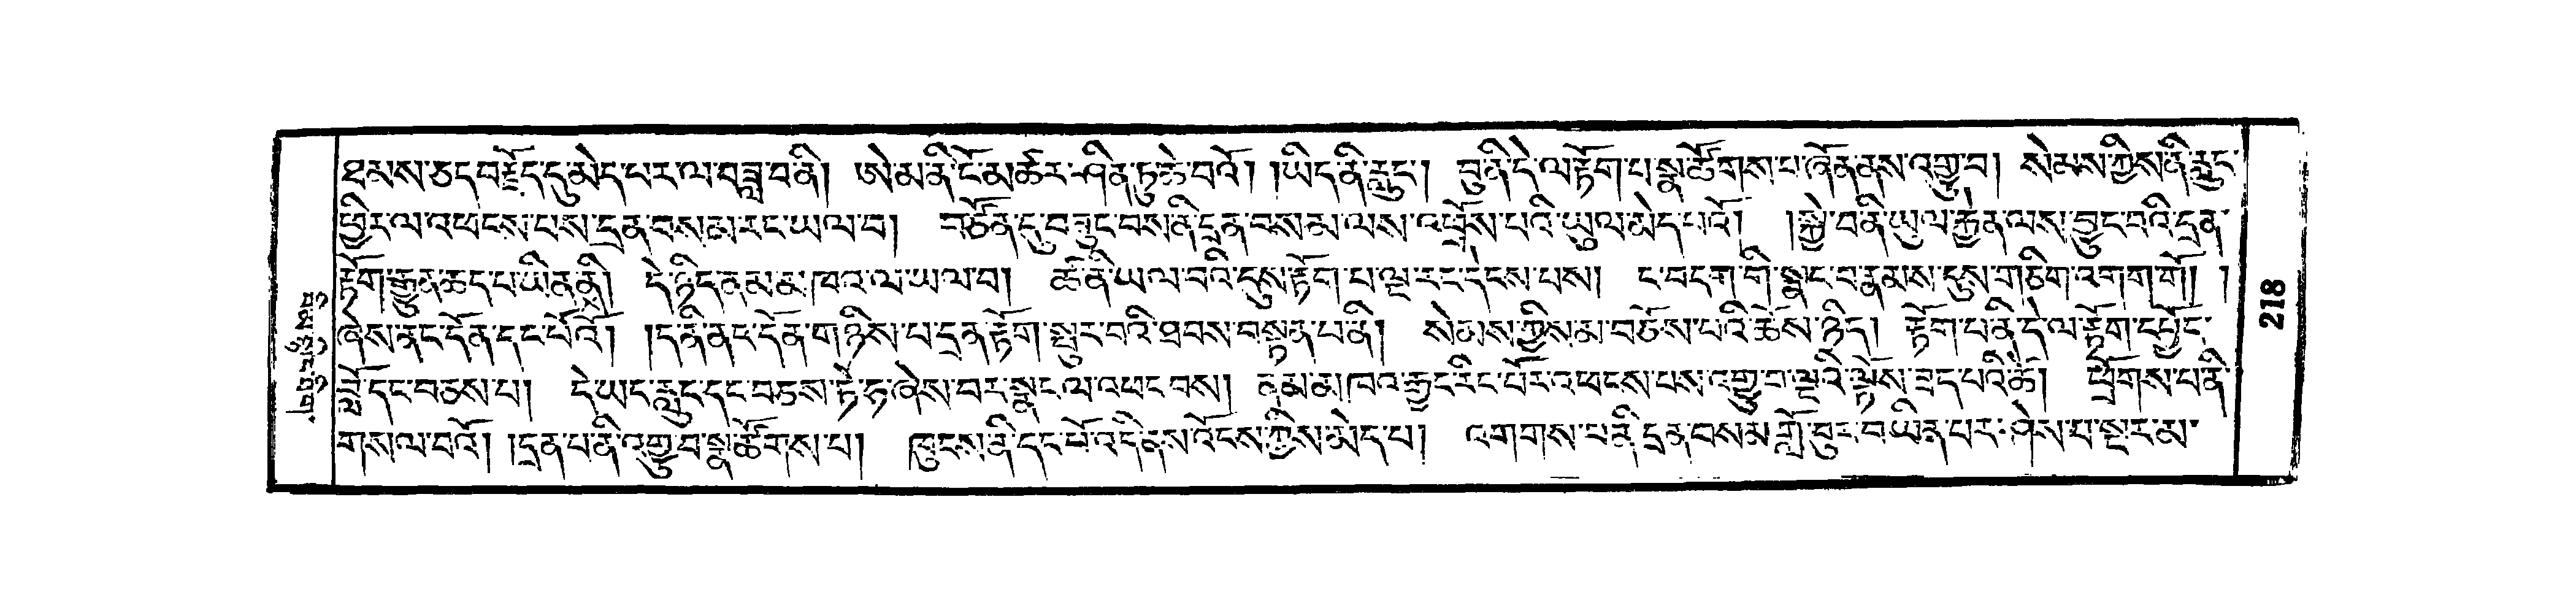 ཐམས་ཅད་བརྗོད་དུ་མེད་པར་ལ་བཟླ་བནི། ཨེ་མ་ནི་ངོ་མཚར་ཤིན་ཏུ་ཆེ་བའོ། །ཡིད་ནི་རླུང་། བུ་ནི་དེ་ལ་རྟོག་པ་སྣ་ཚོགས་པ་ཞོན་ནས་འགྱུ་བ། སེམས་ཀྱིས་ནི་རླུང་
ཕྱིར་ལ་འཕངས་པས་དྲན་བསམ་རང་ཡལ་བ། བཙོན་དུ་བཟུང་བས་ནི་དྲན་བསམ་ལས་འཕྲོས་པའི་ཡུལ་མེད་པའོ། །སྐྱེ་བ་ནི་ཡུལ་རྐྱེན་ལས་བྱུང་བའི་དྲན་
རྟོག་རྒྱུན་ཆད་པ་ཡིན་ནི། དེ་ཉིད་ནམ་མ་ཁའ་ལ་ཡལ་བ། ཚེ་ནི་ཡལ་བའི་དུས་རྟོག་པ་ལྔ་རང་དེངས་པས། ང་བདག་གི་སྣང་བ་རྣམས་དུས་གཅིག་འགག་གོ། །
ཞེས་ནང་དོན་དང་པོའོ། །ད་ནི་ནང་དོན་གཉིས་པ་དྲན་རྟོག་སྤུར་བའི་ཐབས་བསྟན་པ་ནི། སེམས་ཀྱིས་མ་བཅོས་པའི་ཆོས་ཉིད། རྟོག་པ་ནི་དེ་ལ་རྟོག་དཔྱོད་
བློ་དང་བཅས་པ། དེ་ཡང་རླུང་དང་བཅས་ཏེ་ཧ་ཞེས་བར་སྣང་ལ་འཕང་བས། ནམ་མ་ཁའ་རྒྱང་རིང་པོར་འཕངས་པས་འགྱུ་བ་ལྔའི་ལྟོས་ཟད་པའི་ཚེ། ཕྱོགས་པ་ནི་
གསལ་བའོ། །དྲན་པ་ནི་འགྱུ་བ་སྣ་ཚོགས་པ། ཁུངས་ནི་དང་པོ་འདི་ནས་འོངས་ཀྱིས་མེད་པ། འགགས་པ་ནི་དྲན་བསམ་གློ་བུར་བ་ཡིན་པར་ཤེས་པ་སྔར་མ་
218